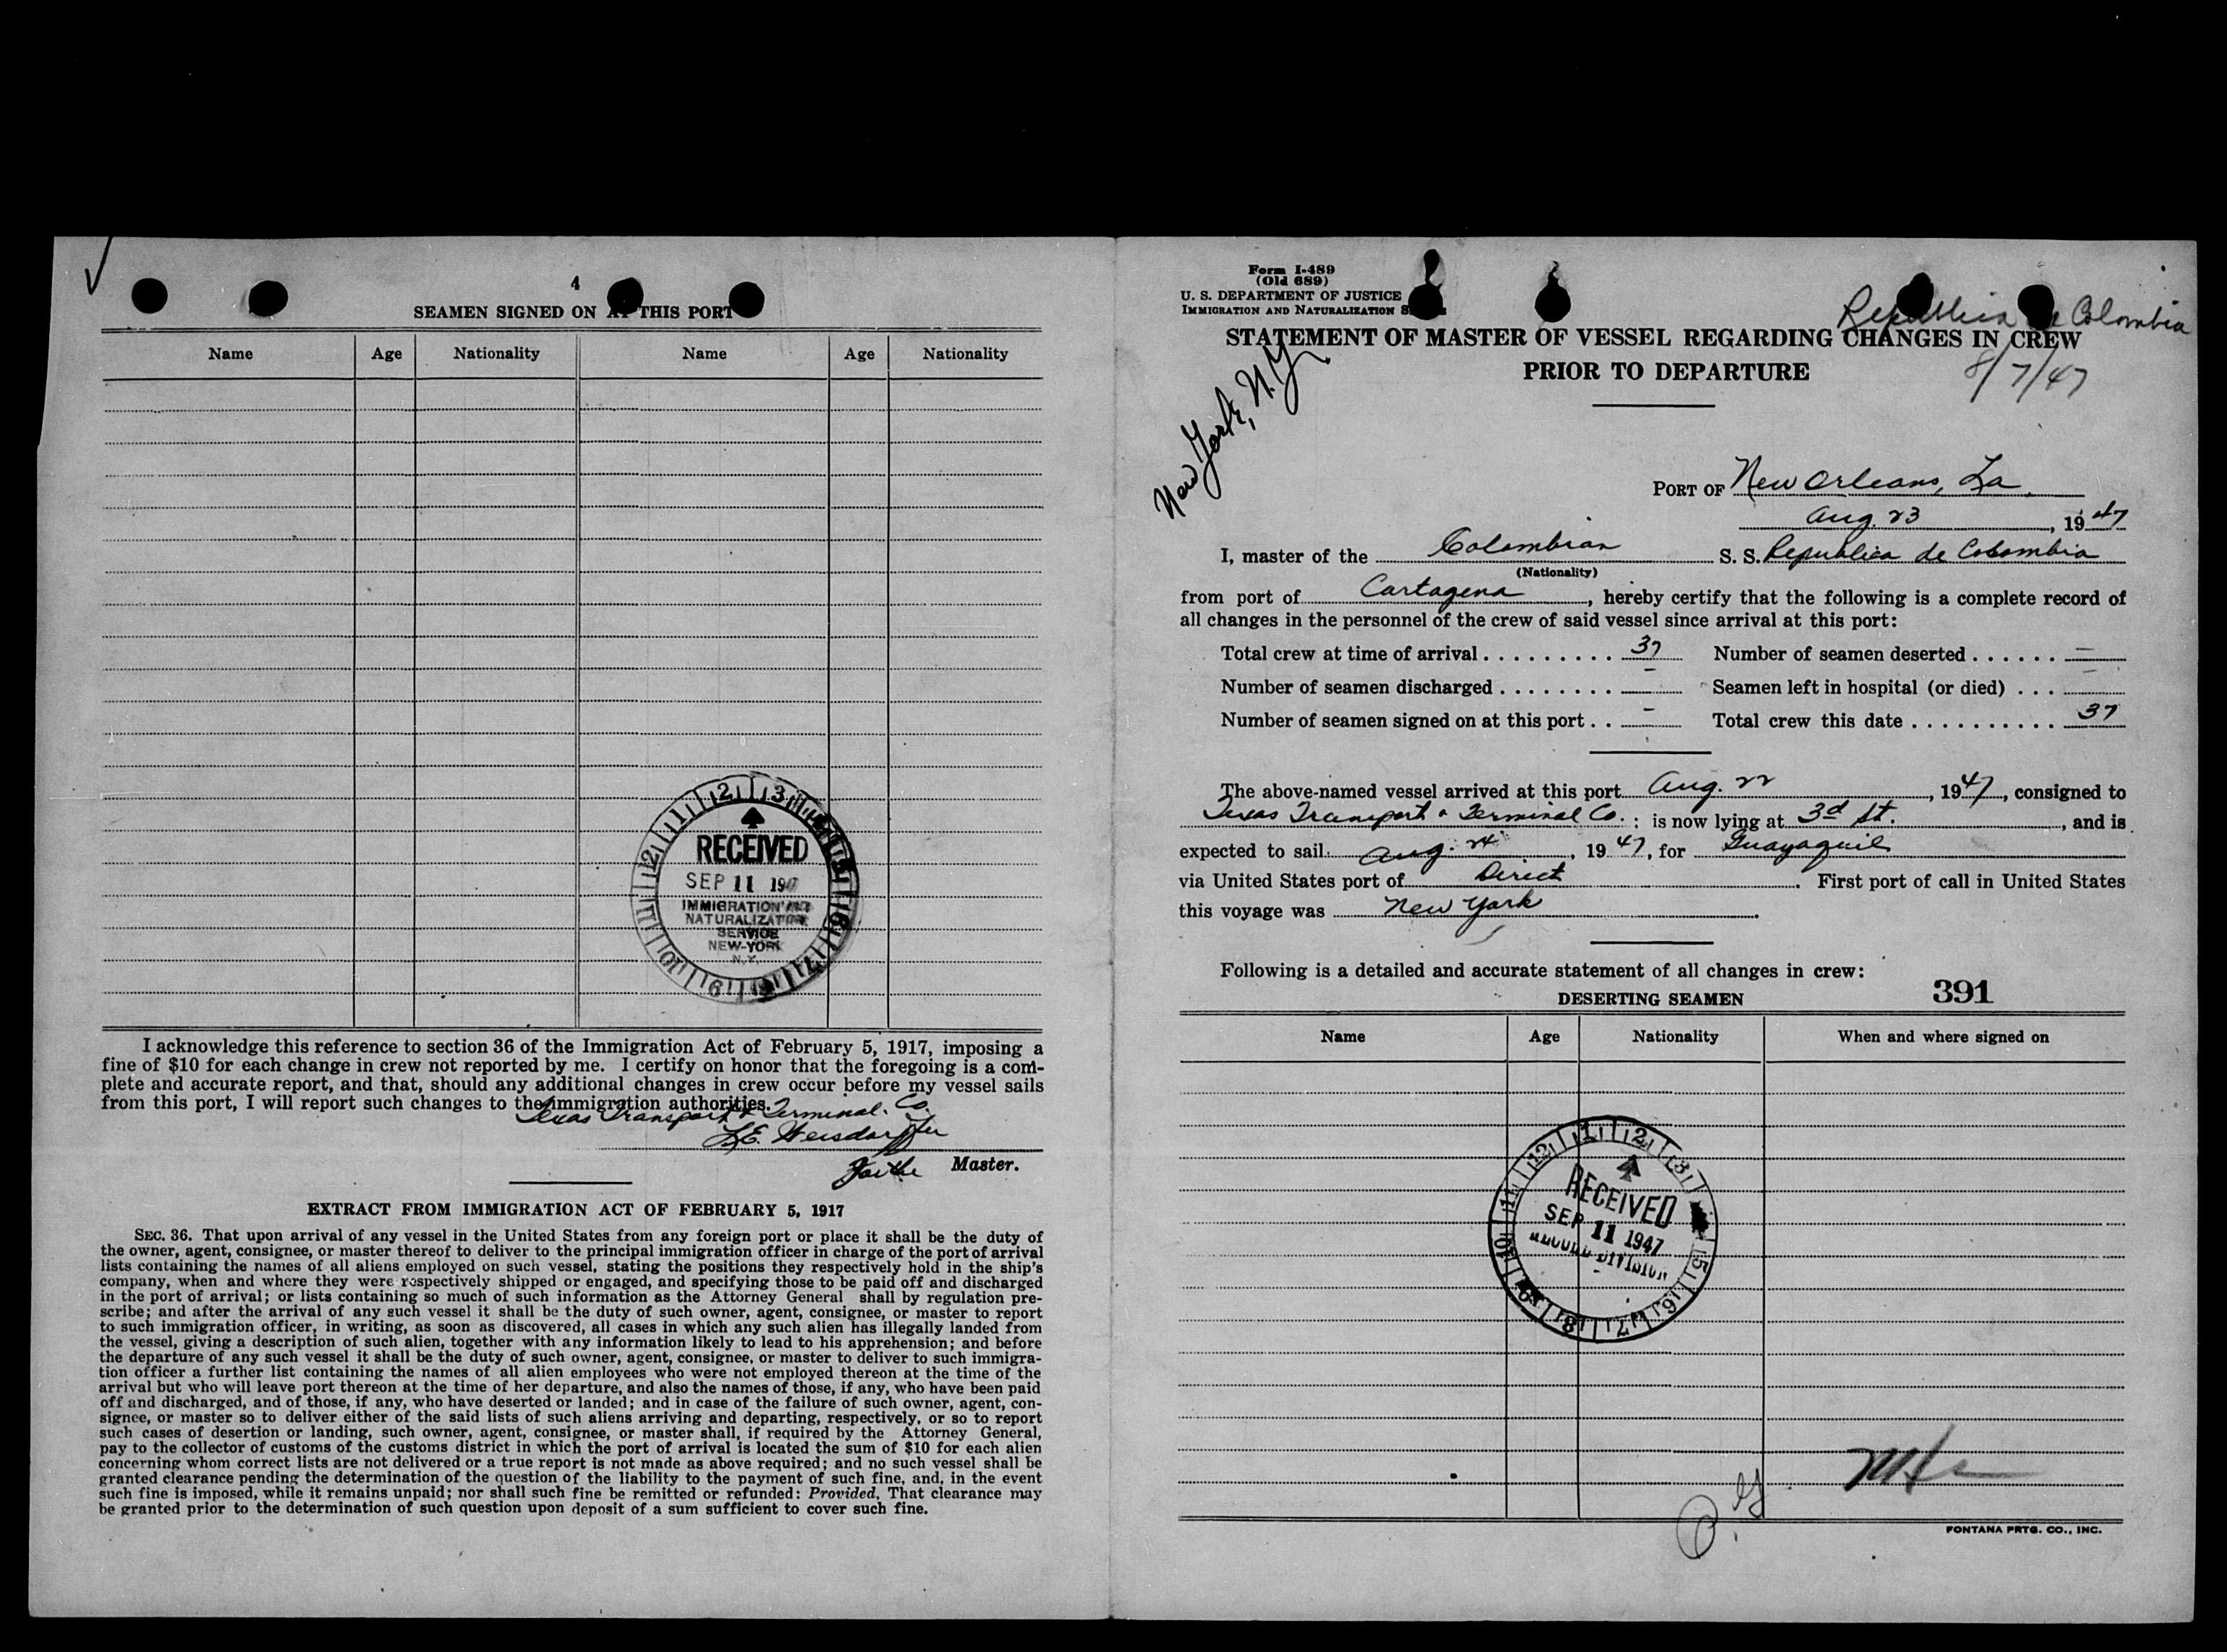 4
SEAMEN SIGNED ON AT THIS PORT
Name Age Nationality Name Age Nationality
RECEIVED
SEP 11 1947
IMMIGRATION AND
NATURALIZATION
SERVICE
NEW-YORK
N.Y.
I acknowledge this reference to section 36 of the Immigration Act of February 5, 1917, imposing a
fine of $10 for each change in crew not reported by me. I certify on honor that the foregoing is a com-
plete and accurate report, and that, should any additional changes in crew occur before my vessel sails
from this port, I will report such changes to the immigration authorities.
Texas Transport & Terminal. Co.
Master.
EXTRACT FROM IMMIGRATION ACT OF FEBRUARY 5, 1917
SEC. 36. That upon arrival of any vessel in the United States from any foreign port or place it shall be the duty of
the owner, agent, consignee, or master thereof to deliver to the principal immigration officer in charge of the port of arrival
lists containing the names of all aliens employed on such vessel, stating the positions they respectively hold in the ship's
company, when and where they were respectively shipped or engaged, and specifying those to be paid off and discharged
in the port of arrival; or lists containing so much of such information as the Attorney General shall by regulation pre-
scribe; and after the arrival of any such vessel it shall be the duty of such owner, agent, consignee, or master to report
to such immigration officer, in writing, as soon as discovered, all cases in which any such alien has illegally landed from
the vessel, giving a description of such alien, together with any information likely to lead to his apprehension; and before
the departure of any such vessel it shall be the duty of such owner, agent, consignee, or master to deliver to such immigra-
tion officer a further list containing the names of all alien employees who were not employed thereon at the time of the
arrival but who will leave port thereon at the time of her departure, and also the names of those, if any, who have been paid
off and discharged, and of those, if any, who have deserted or landed; and in case of the failure of such owner, agent, con-
signee, or master so to deliver either of the said lists of such aliens arriving and departing, respectively, or so to report
such cases of desertion or landing, such owner, agent, consignee, or master shall, if required by the Attorney General,
pay to the collector of customs of the customs district in which the port of arrival is located the sum of $10 for each alien
concerning whom correct lists are not delivered or a true report is not made as above required; and no such vessel shall be
granted clearance pending the determination of the question of the liability to the payment of such fine, and, in the event
such fine is imposed, while it remains unpaid; nor shall such fine be remitted or refunded: Provided, That clearance may
be granted prior to the determination of such question upon deposit of a sum sufficient to cover such fine.
Form I-489
(Old 689)
U. S. DEPARTMENT OF JUSTICE
IMMIGRATION AND NATURALIZATION SERVICE
Republica de Colombia
STATEMENT OF MASTER OF VESSEL REGARDING CHANGES IN CREW
PRIOR TO DEPARTURE
8/7/47
New York, N.Y.
PORT OF New Orleans, La.
Aug. 23, 1947
I, master of the Colombian S. S. Republica de Colombia
(Nationality)
from port of Cartagena, hereby certify that the following is a complete record of
all changes in the personnel of the crew of said vessel since arrival at this port:
Total crew at time of arrival . . . . . . . . . 37 Number of seamen deserted . . . . . . —
Number of seamen discharged . . . . . . . . – Seamen left in hospital (or died) . . . –
Number of seamen signed on at this port . . – Total crew this date . . . . . . . . . . 37
The above-named vessel arrived at this port Aug. 22, 1947, consigned to
Texas Transport & Terminal Co.; is now lying at 3d St., and is
expected to sail Aug. 24, 1947, for Guayaquil
via United States port of Direct. First port of call in United States
this voyage was New York.
Following is a detailed and accurate statement of all changes in crew:
DESERTING SEAMEN 391
Name Age Nationality When and where signed on
RECEIVED
SEP 11 1947
RECORD DIVISION
FONTANA PRTG. CO., INC.